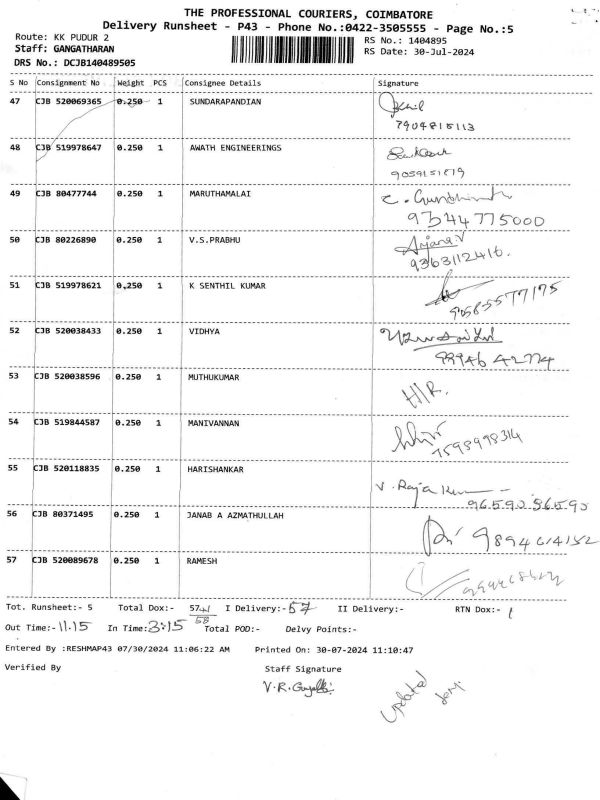 THE PROFESSIONAL COURIERS, COIMBATORE
Delivery Runsheet - P43 - Phone No.:0422-3505555 - Page No.:5
Route: KK PUDUR 2 RS No.: 1404895
Staff: GANGATHARAN RS Date: 30-Jul-2024
DRS No.: DCJB140489505
S No Consignment No Weight PCS Consignee Details Signature
47 CJB 520069365 0.250 1 SUNDARAPANDIAN
7904815113
48 CJB 519978647 0.250 1 AWATH ENGINEERINGS
9059151819
49 CJB 80477744 0.250 1 MARUTHAMALAI
9344775000
50 CJB 80226890 0.250 1 V.S.PRABHU
9363112416.
51 CJB 519978621 0.250 1 K SENTHIL KUMAR
52 CJB 520038433 0.250 1 VIDHYA
99946 42774
53 CJB 520038596 0.250 1 MUTHUKUMAR
H/R.
54 CJB 519844587 0.250 1 MANIVANNAN
7598998314
55 CJB 520118835 0.250 1 HARISHANKAR
V. Raja Kumar
96590 56590
56 CJB 80371495 0.250 1 JANAB A AZMATHULLAH
9894614152
57 CJB 520089678 0.250 1 RAMESH
Tot. Runsheet:- 5 Total Dox:- 57+1 I Delivery:- 57 II Delivery:- RTN Dox:- 1
58
Out Time:- 11.15 In Time:- 3:15 Total POD:- Delvy Points:-
Entered By :RESHMAP43 07/30/2024 11:06:22 AM Printed On: 30-07-2024 11:10:47
Verified By Staff Signature
Updated